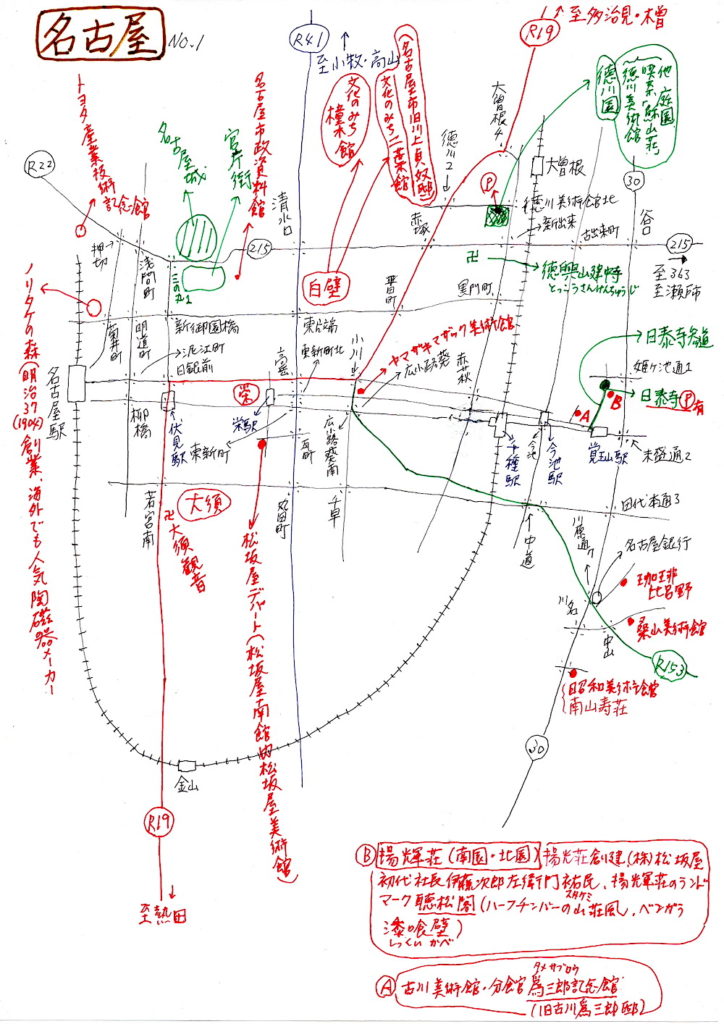 名古屋 No.1
R41
至小牧・高山
R19
至多治見・木曽
R22
トヨタ産業技術記念館
名古屋城
官庁街
名古屋市政資料館
文化のみち橦木館
(名古屋市旧川上貞奴邸)
文化のみち二葉館
徳川園
徳川美術館
喫茶「蘇山荘」
他庭園
大曽根
徳川2
赤塚
P
徳川美術館北
新出来
古出来町
30
谷口
215
至363
至瀬戸市
清水口
215
白壁
徳興山建中寺
とっこうさんけんちゅうじ
押切
浅間町
三の丸1
黒門町
ノリタケの森(明治37(1904)創業、海外でも人気陶磁器メーカー
菊井町
明道町
新御園橋
泥江町
日銀前
東片端
高岳
東新町北
小川
ヤマザキマザック美術館
広小路葵
日泰寺参道
姫ケ池通1
日泰寺P有
B
A
名古屋駅
柳橋
伏見駅
栄
栄駅
東新町
瓦町
広小路葵南
千種駅
今池
今池駅
覚王山駅
末盛通2
若宮南
大須
卍大須観音
丸田町
千早
中道
田代本通3
川原通
名古屋銀行
珈琲
比呂野
川名
中山
桑山美術館
R153
昭和美術館
南山寿荘
松坂屋デパート(松坂屋南館内松坂屋美術館)
30
金山
R19
至熱田
B 揚輝荘(南園・北園) 揚輝荘創建(株)松坂屋
初代社長伊藤次郎左衛門祐民、揚輝荘のランド
スケミ
マーク聴松閣(ハーフチンバーの山荘風、ベンガラ
漆喰壁)
しっくいかべ
タメサブロウ
A 古川美術館・分館 爲三郎記念館
(旧古川爲三郎邸)